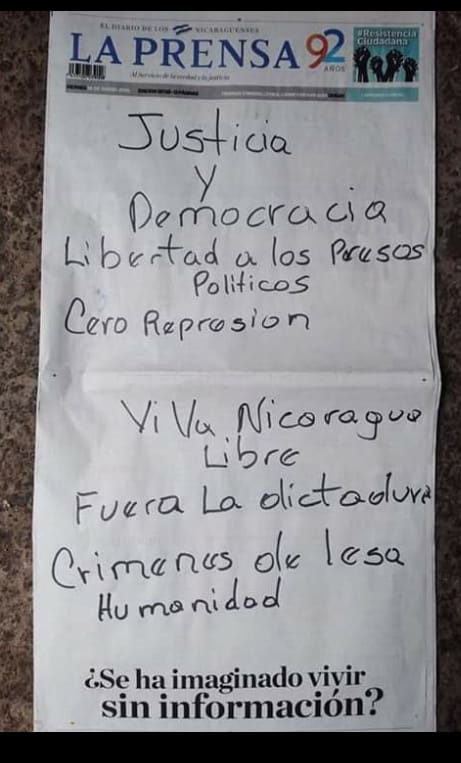 EL DIARIO DE LOS NICARAGÜENSES
LA PRENSA 92
AÑOS
Al Servicio de la verdad y la justicia
#Resistencia
Ciudadana
Justicia
Y
Democracia
Libertad a los Presos
Politicos
Cero Represion
ViVa Nicaragua
Libre
Fuera La dictadura
Crimenes de lesa
Humanidad
¿Se ha imaginado vivir
sin información?